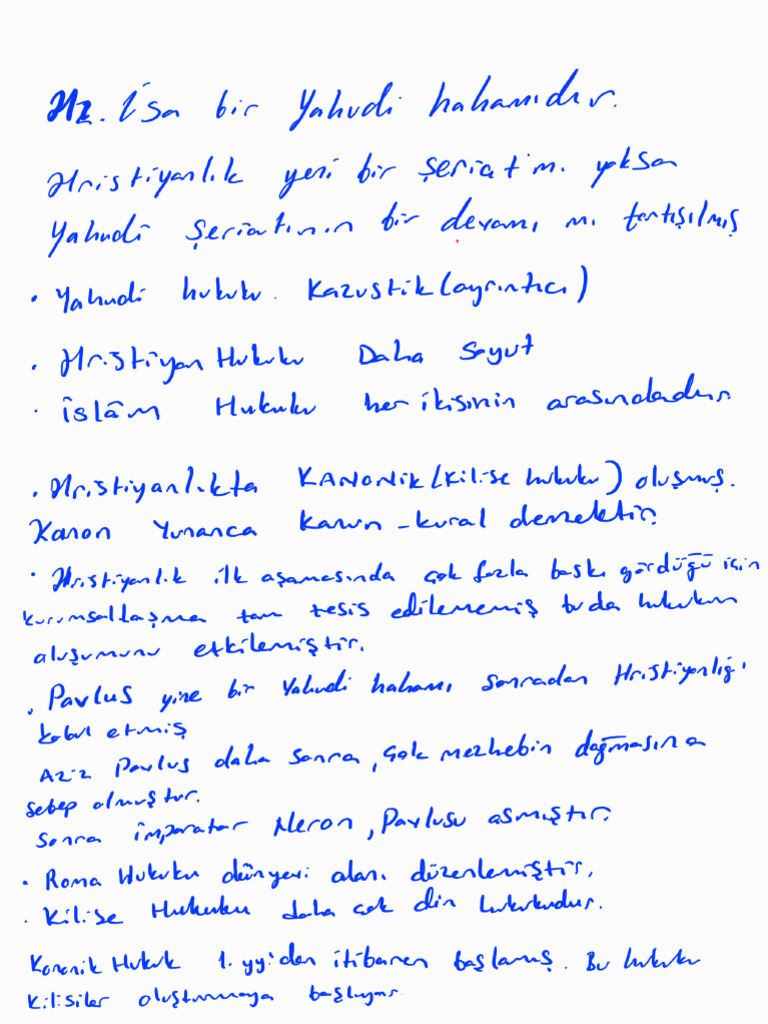 Hz. İsa bir Yahudi hahamıdır.
Hristiyanlık yeni bir şeriat mı. yoksa
Yahudi şeriatının bir devamı mı tartışılmış
• Yahudi hukuku. Kazustik (ayrıntıcı)
• Hristiyan Hukuku Daha soyut
• İslâm Hukuku her ikisinin arasındadır.
• Hristiyanlıkta KANONİK (Kilise hukuku) oluşmuş.
Kanon Yunanca kanun - kural demektir.
• Hristiyanlık ilk aşamasında çok fazla baskı gördüğü için
kurumsallaşma tam tesis edilememiş bu da hukukun
oluşumunu etkilemiştir.
• Pavlus yine bir Yahudi hahamı sonradan Hristiyanlığı
kabul etmiş
Aziz Pavlus daha sonra, çok mezhebin doğmasına
sebep olmuştur.
Sonra imparator Neron, Pavlusu asmıştır.
• Roma Hukuku dünyevi alanı düzenlemiştir.
• Kilise Hukuku daha çok din hukukudur.
Kononik Hukuk 1. yy'dan itibaren başlamış. Bu hukuku
kilisiler oluşturmaya başlıyor.